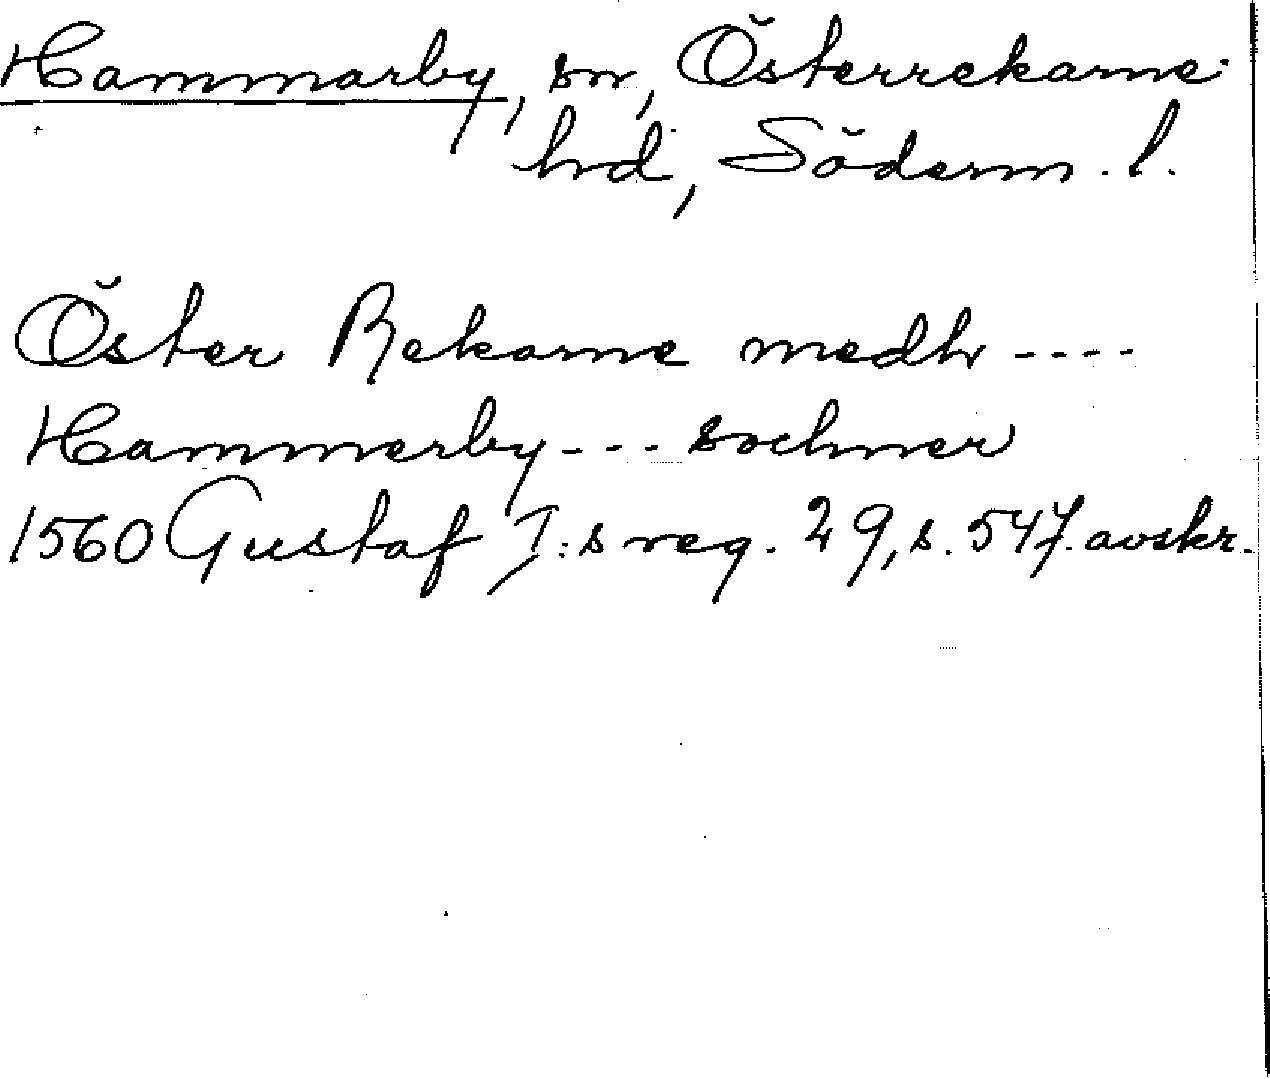 Hammarby, sn, Österrekarne
hd, Söderm. l.
Öster Rekarne medh ----
Hammerby --- sochner
1560 Gustaf I:s reg. 29, s. 547. avskr.